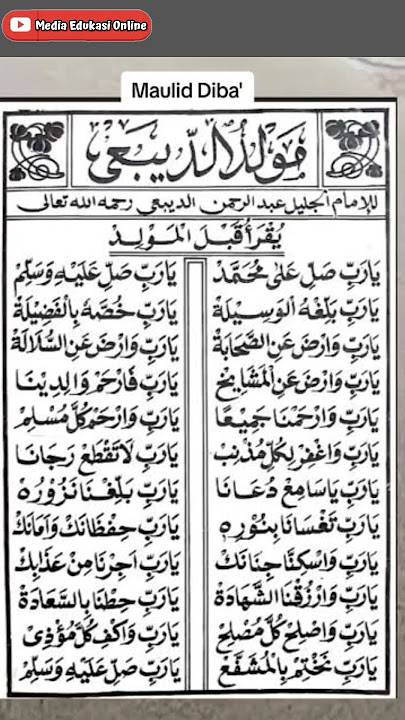 Media Edukasi Online
Maulid Diba'
مَوْلِدُ الدِّيبَعِى
للإمام الجليل عبد الرحمن الديبعي رحمه الله تعالى
يُقْرَأُ قَبْلَ الْمَوْلِدِ
يَارَبِّ صَلِّ عَلَى مُحَمَّدْ يَارَبِّ صَلِّ عَلَيْهِ وَسَلِّمْ
يَارَبِّ بَلِّغْهُ الْوَسِيْلَةْ يَارَبِّ خُصَّهُ بِالْفَضِيْلَةْ
يَارَبِّ وَارْضَ عَنِ الصَّحَابَةْ يَارَبِّ وَارْضَ عَنِ السُّلَالَةْ
يَارَبِّ وَارْضَ عَنِ الْمَشَايِخْ يَارَبِّ فَارْحَمْ وَالِدِيْنَا
يَارَبِّ وَارْحَمْنَا جَمِيْعًا يَارَبِّ وَارْحَمْ كُلَّ مُسْلِمْ
يَارَبِّ وَاغْفِرْ لِكُلِّ مُذْنِبْ يَارَبِّ لَاتَقْطَعْ رَجَانَا
يَارَبِّ يَاسَامِعْ دُعَانَا يَارَبِّ بَلِّغْنَا نَزُوْرُهْ
يَارَبِّ تَغْشَانَا بِنُوْرِهِ يَارَبِّ حِفْظَانَكْ وَاَمَانَكْ
يَارَبِّ وَاسْكِنَّا جِنَانَكْ يَارَبِّ اَجِرْنَا مِنْ عَذَابِكْ
يَارَبِّ وَارْزُقْنَا الشَّهَادَةْ يَارَبِّ حِطْنَا بِالسَّعَادَةْ
يَارَبِّ وَاصْلِحْ كُلَّ مُصْلِحْ يَارَبِّ وَاكْفِ كُلَّ مُؤْذِىْ
يَارَبِّ نَخْتِمْ بِالْمُشَفَّعْ يَارَبِّ صَلِّ عَلَيْهِ وَسَلِّمْ